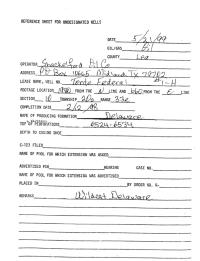 REFERENCE SHEET FOR UNDESIGNATED WELLS
DATE 5/21/99
OIL/GAS Oil
COUNTY Lea
OPERATOR Shackelford Oil Co
ADDRESS P.O. Box 10665 Midland, Tx 79702
LEASE NAME, WELL NO. Tonto Federal #1-H
FOOTAGE LOCATION FROM THE N LINE AND FROM THE E LINE
SECTION 10 TOWNSHIP RANGE 33e
COMPLETION DATE
NAME OF PRODUCING FORMATION Delaware
TOP OF PERFORATIONS 6524-6534
DEPTH TO CASING SHOE
C-123 FILED
NAME OF POOL FOR WHICH EXTENSION WAS ASKED
ADVERTISED FOR HEARING CASE NO.
NAME OF POOL FOR WHICH EXTENSION WAS ADVERTISED
PLACED IN BY ORDER NO. R-
REMARKS Wildcat Delaware